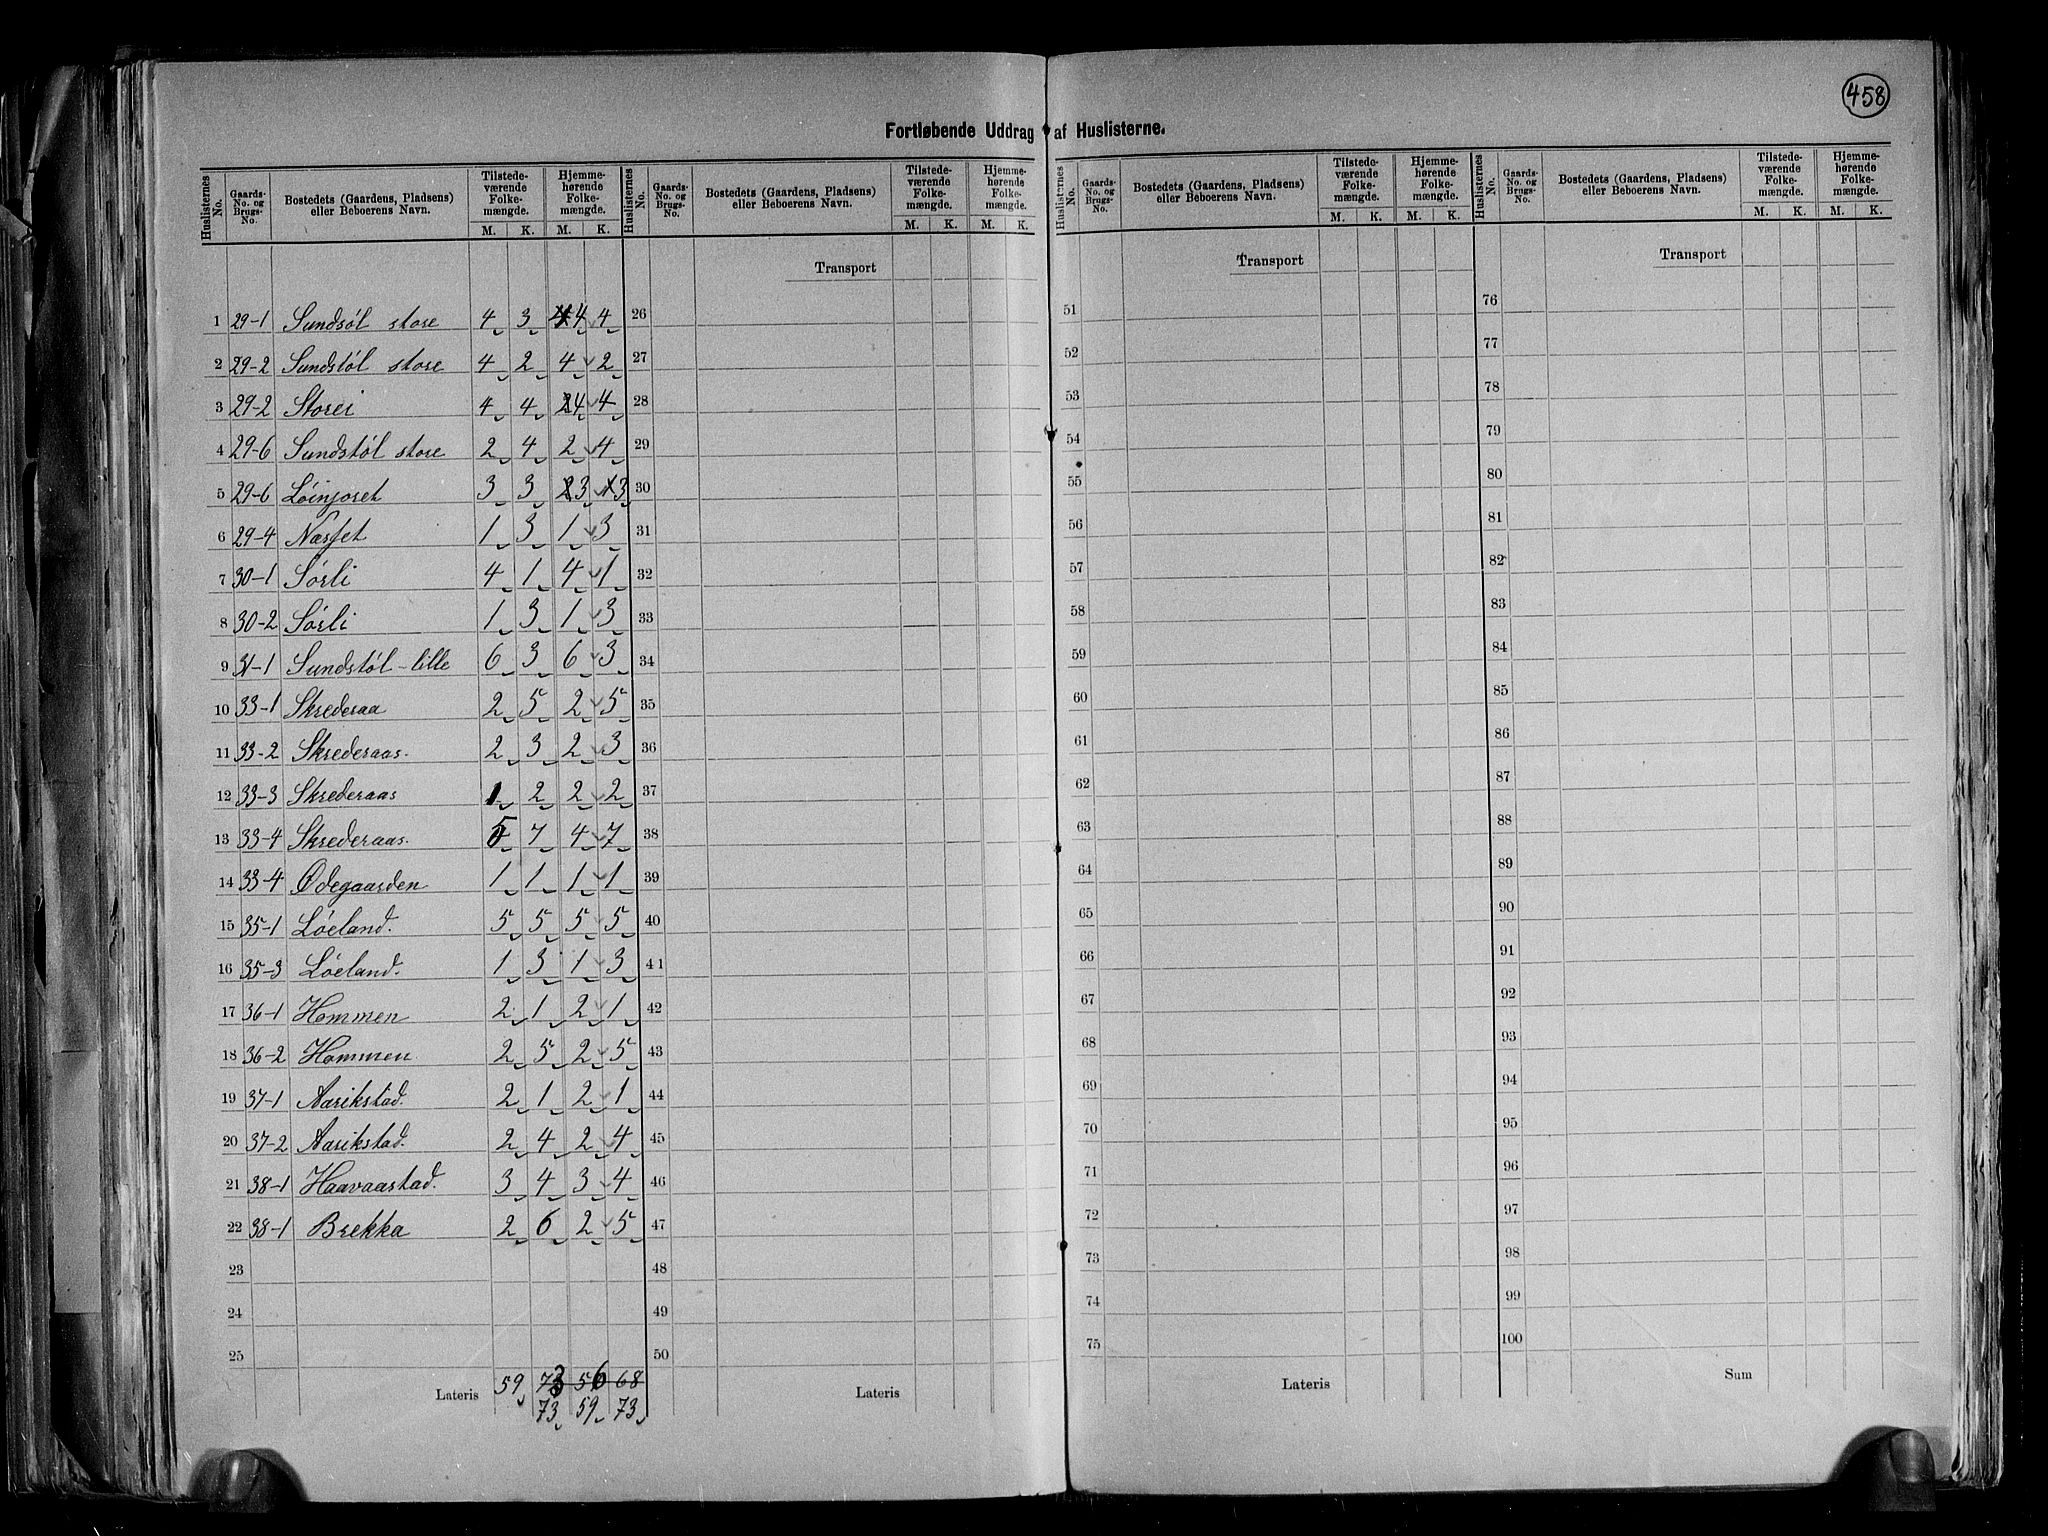 458
Fortløbende Uddrag af Huslisterne.
Huslisternes No. | Gaards-No. og Brugs-No. | Bostedets (Gaardens, Pladsens) eller Beboerens Navn. | Tilstedeværende Folkemængde. M. K. | Hjemmehørende Folkemængde. M. K. | Huslisternes No. | Gaards-No. og Brugs-No. | Bostedets (Gaardens, Pladsens) eller Beboerens Navn. | Tilstedeværende Folkemængde. M. K. | Hjemmehørende Folkemængde. M. K. | Huslisternes No. | Gaards-No. og Brugs-No. | Bostedets (Gaardens, Pladsens) eller Beboerens Navn. | Tilstedeværende Folkemængde. M. K. | Hjemmehørende Folkemængde. M. K. | Huslisternes No. | Gaards-No. og Brugs-No. | Bostedets (Gaardens, Pladsens) eller Beboerens Navn. | Tilstedeværende Folkemængde. M. K. | Hjemmehørende Folkemængde. M. K.
Transport Transport Transport
1 29-1 Sundsöl store 4 3 4 4 26 51 76
2 29-2 Sundstöl store 4 2 4 2 27 52 77
3 29-2 Storei 4 4 4 4 28 53 78
4 29-6 Sundstöl store 2 4 2 4 29 54 79
5 29-6 Löinjoret 3 3 3 3 30 55 80
6 29-4 Næsset 1 3 1 3 31 56 81
7 30-1 Sörli 4 1 4 1 32 57 82
8 30-2 Sörli 1 3 1 3 33 58 83
9 31-1 Sundstöl-lille 6 3 6 3 34 59 84
10 33-1 Skrederaa 2 5 2 5 35 60 85
11 33-2 Skrederaas. 2 3 2 3 36 61 86
12 33-3 Skrederaas 1 2 2 2 37 62 87
13 33-4 Skrederaas. 5 7 4 7 38 63 88
14 33-4 Ødegaarden 1 1 1 1 39 64 89
15 35-1 Löeland. 5 5 5 5 40 65 90
16 35-3 Löeland. 1 3 1 3 41 66 91
17 36-1 Hommen 2 1 2 1 42 67 92
18 36-2 Hommen 2 5 2 5 43 68 93
19 37-1 Aarikstad. 2 1 2 1 44 69 94
20 37-2 Aarikstad. 2 4 2 4 45 70 95
21 38-1 Haavaastad. 3 4 3 4 46 71 96
22 38-1 Brekka 2 6 2 5 47 72 97
23 48 73 98
24 49 74 99
25 50 75 100
Lateris 59 73 56 68 Lateris Lateris Sum
73 59 73